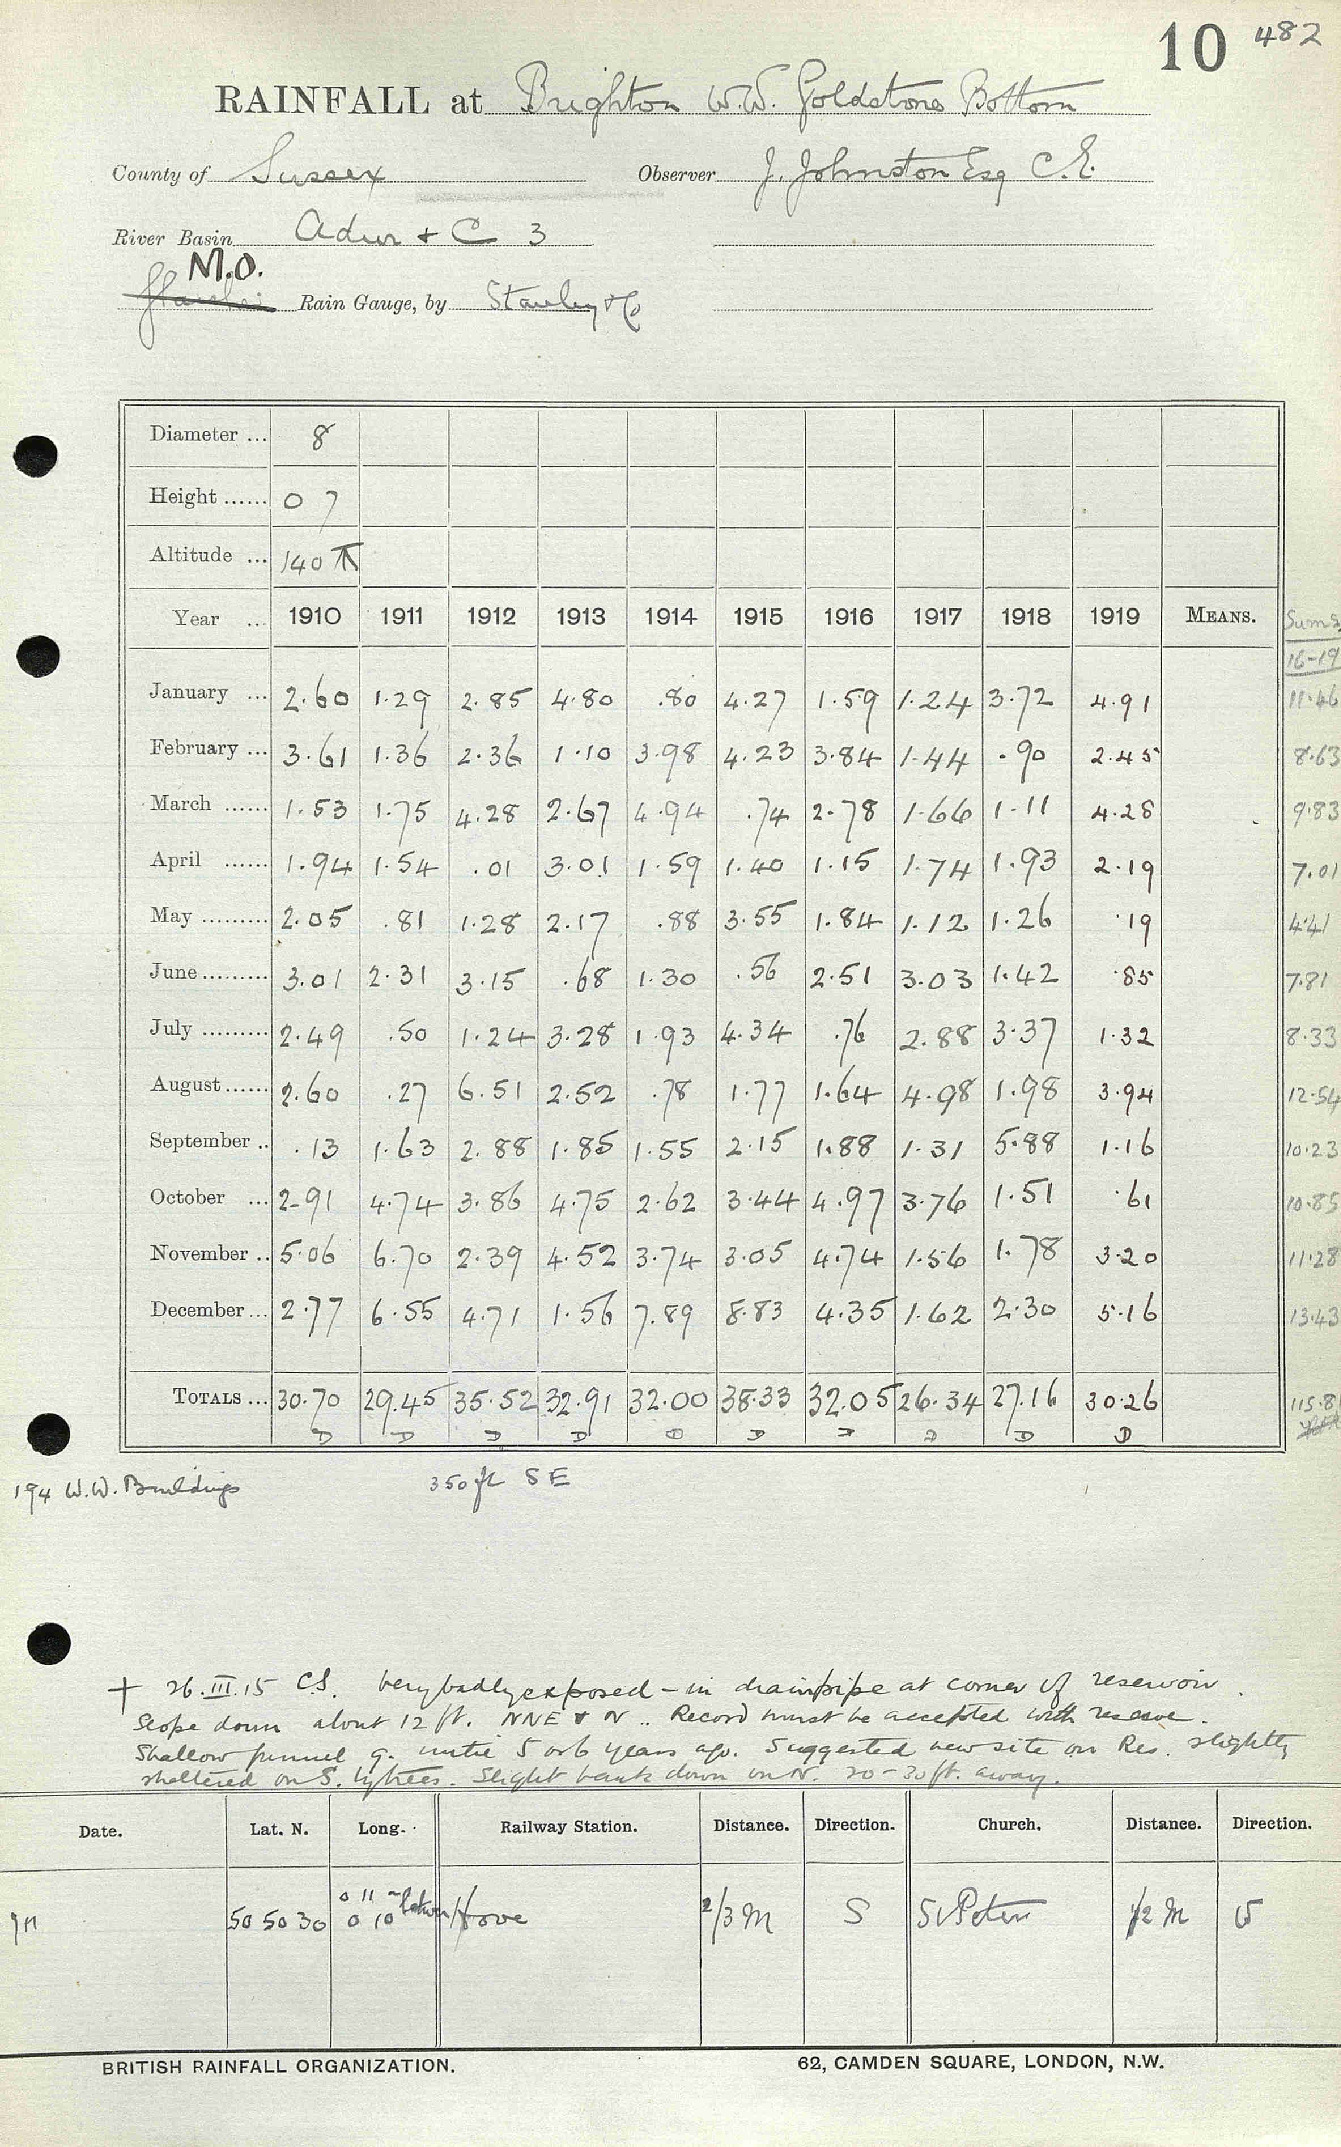 10 482
RAINFALL at Brighton W.W. Goldstone Bottom
County of Sussex Observer J. Johnston Esq C.E.
River Basin Adur + C 3
M.O.
Rain Gauge, by Stanley & Co
Diameter ... 8
Height ...... 0 7
Altitude ... 140
Year ... 1910 1911 1912 1913 1914 1915 1916 1917 1918 1919 MEANS. Sums
16-19
January ... 2.60 1.29 2.85 4.80 .80 4.27 1.59 1.24 3.72 4.91 11.46
February ... 3.61 1.36 2.36 1.10 3.98 4.23 3.84 1.44 .90 2.45 8.63
March ...... 1.53 1.75 4.28 2.67 4.94 .74 2.78 1.66 1.11 4.28 9.83
April ...... 1.94 1.54 .01 3.01 1.59 1.40 1.15 1.74 1.93 2.19 7.01
May ......... 2.05 .81 1.28 2.17 .88 3.55 1.84 1.12 1.26 .19 4.41
June ......... 3.01 2.31 3.15 .68 1.30 .56 2.51 3.03 1.42 .85 7.81
July ......... 2.49 .50 1.24 3.28 1.93 4.34 .76 2.88 3.37 1.32 8.33
August ...... 2.60 .27 6.51 2.52 .78 1.77 1.64 4.98 1.98 3.94 12.54
September .. .13 1.63 2.88 1.85 1.55 2.15 1.88 1.31 5.88 1.16 10.23
October ... 2.91 4.74 3.86 4.75 2.62 3.44 4.97 3.76 1.51 .61 10.85
November .. 5.06 6.70 2.39 4.52 3.74 3.05 4.74 1.56 1.78 3.20 11.28
December ... 2.77 6.55 4.71 1.56 7.89 8.83 4.35 1.62 2.30 5.16 13.43
TOTALS ... 30.70 29.45 35.52 32.91 32.00 38.33 32.05 26.34 27.16 30.26 115.8
D D D D D D D D D D
194 W.W. Buildings 350 ft SE
+ 26.III.15 C.S. very badly exposed - in drainpipe at corner of reservoir.
Slope down about 12 ft. NNE & N .. Record must be accepted with reserve.
Shallow funnel g. until 5 or 6 years ago. Suggested new site on Res. slightly
sheltered on S. by trees. Slight bank down on N. 20-30 ft. away.
Date. Lat. N. Long. Railway Station. Distance. Direction. Church. Distance. Direction.
0 11
50 50 30 0 10 Hove 2/3 M S St Peter 1/2 M W
BRITISH RAINFALL ORGANIZATION. 62, CAMDEN SQUARE, LONDON, N.W.